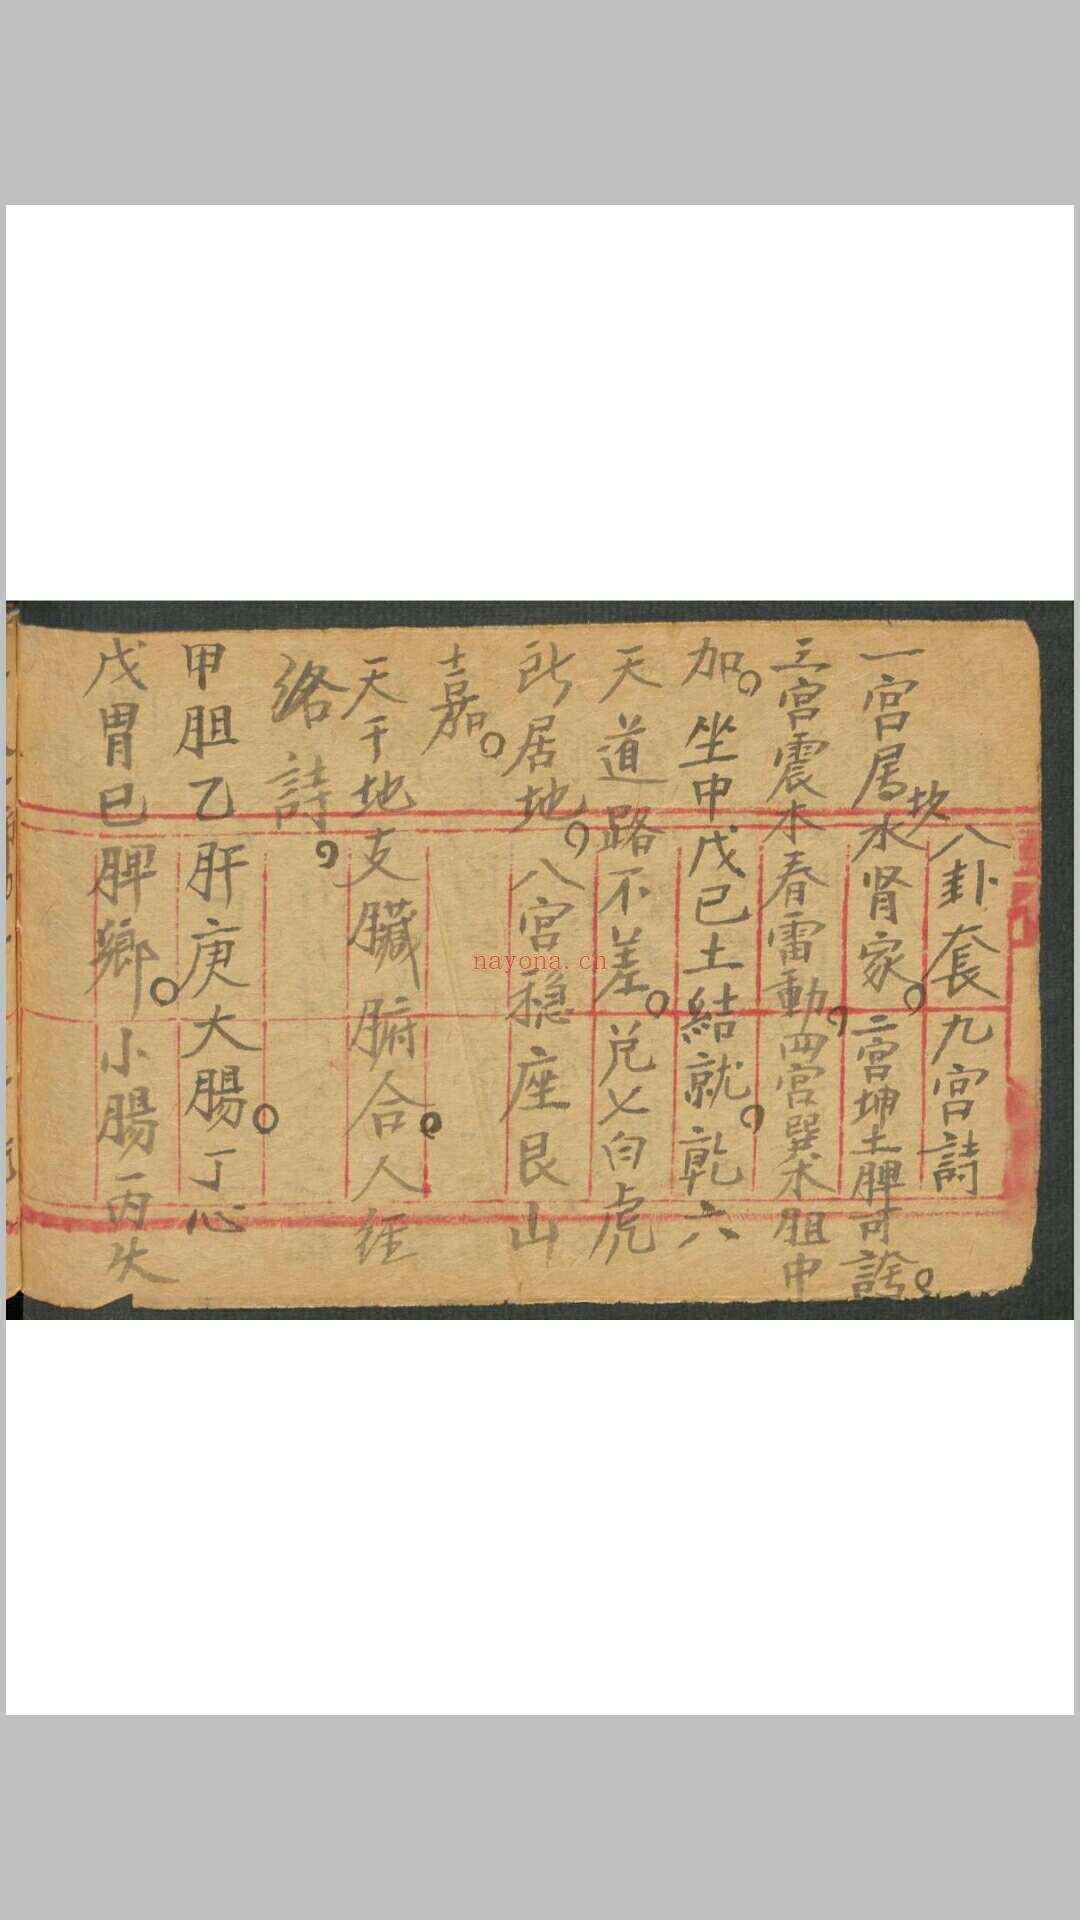 八卦套九宮詩
一宮属坎水肾家。二宮坤土脾可誇。
三宮震木春雷動。四宮巽木胆中
加。坐中戊已土結就。乾六
天道路不差。兑七白虎
所居地。八宮穏座艮山
嘉。
天干地支臟腑合。人経
络詩。
甲胆乙肝庚大腸。丁心
戊胃巳脾鄉。小腸丙火
nayona.cn